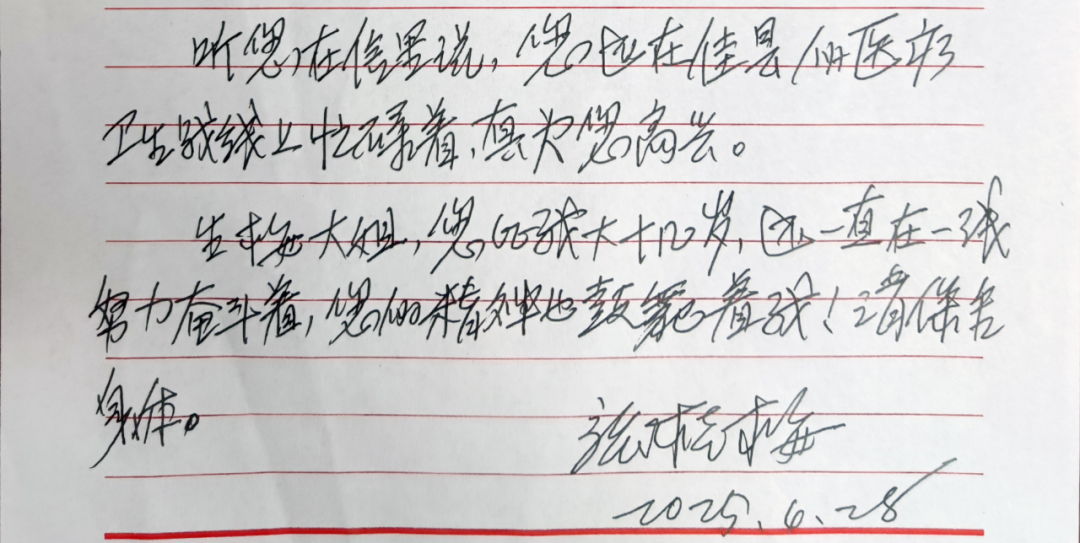 听您在信里说,您还在佳县的医疗
卫生战线上忙碌着,真为您高兴。
生梅大姐,您比我大十几岁,还一直在一线
努力奋斗着,您的精神也鼓舞着我!请保合
身体。
张桂梅
2025.6.28